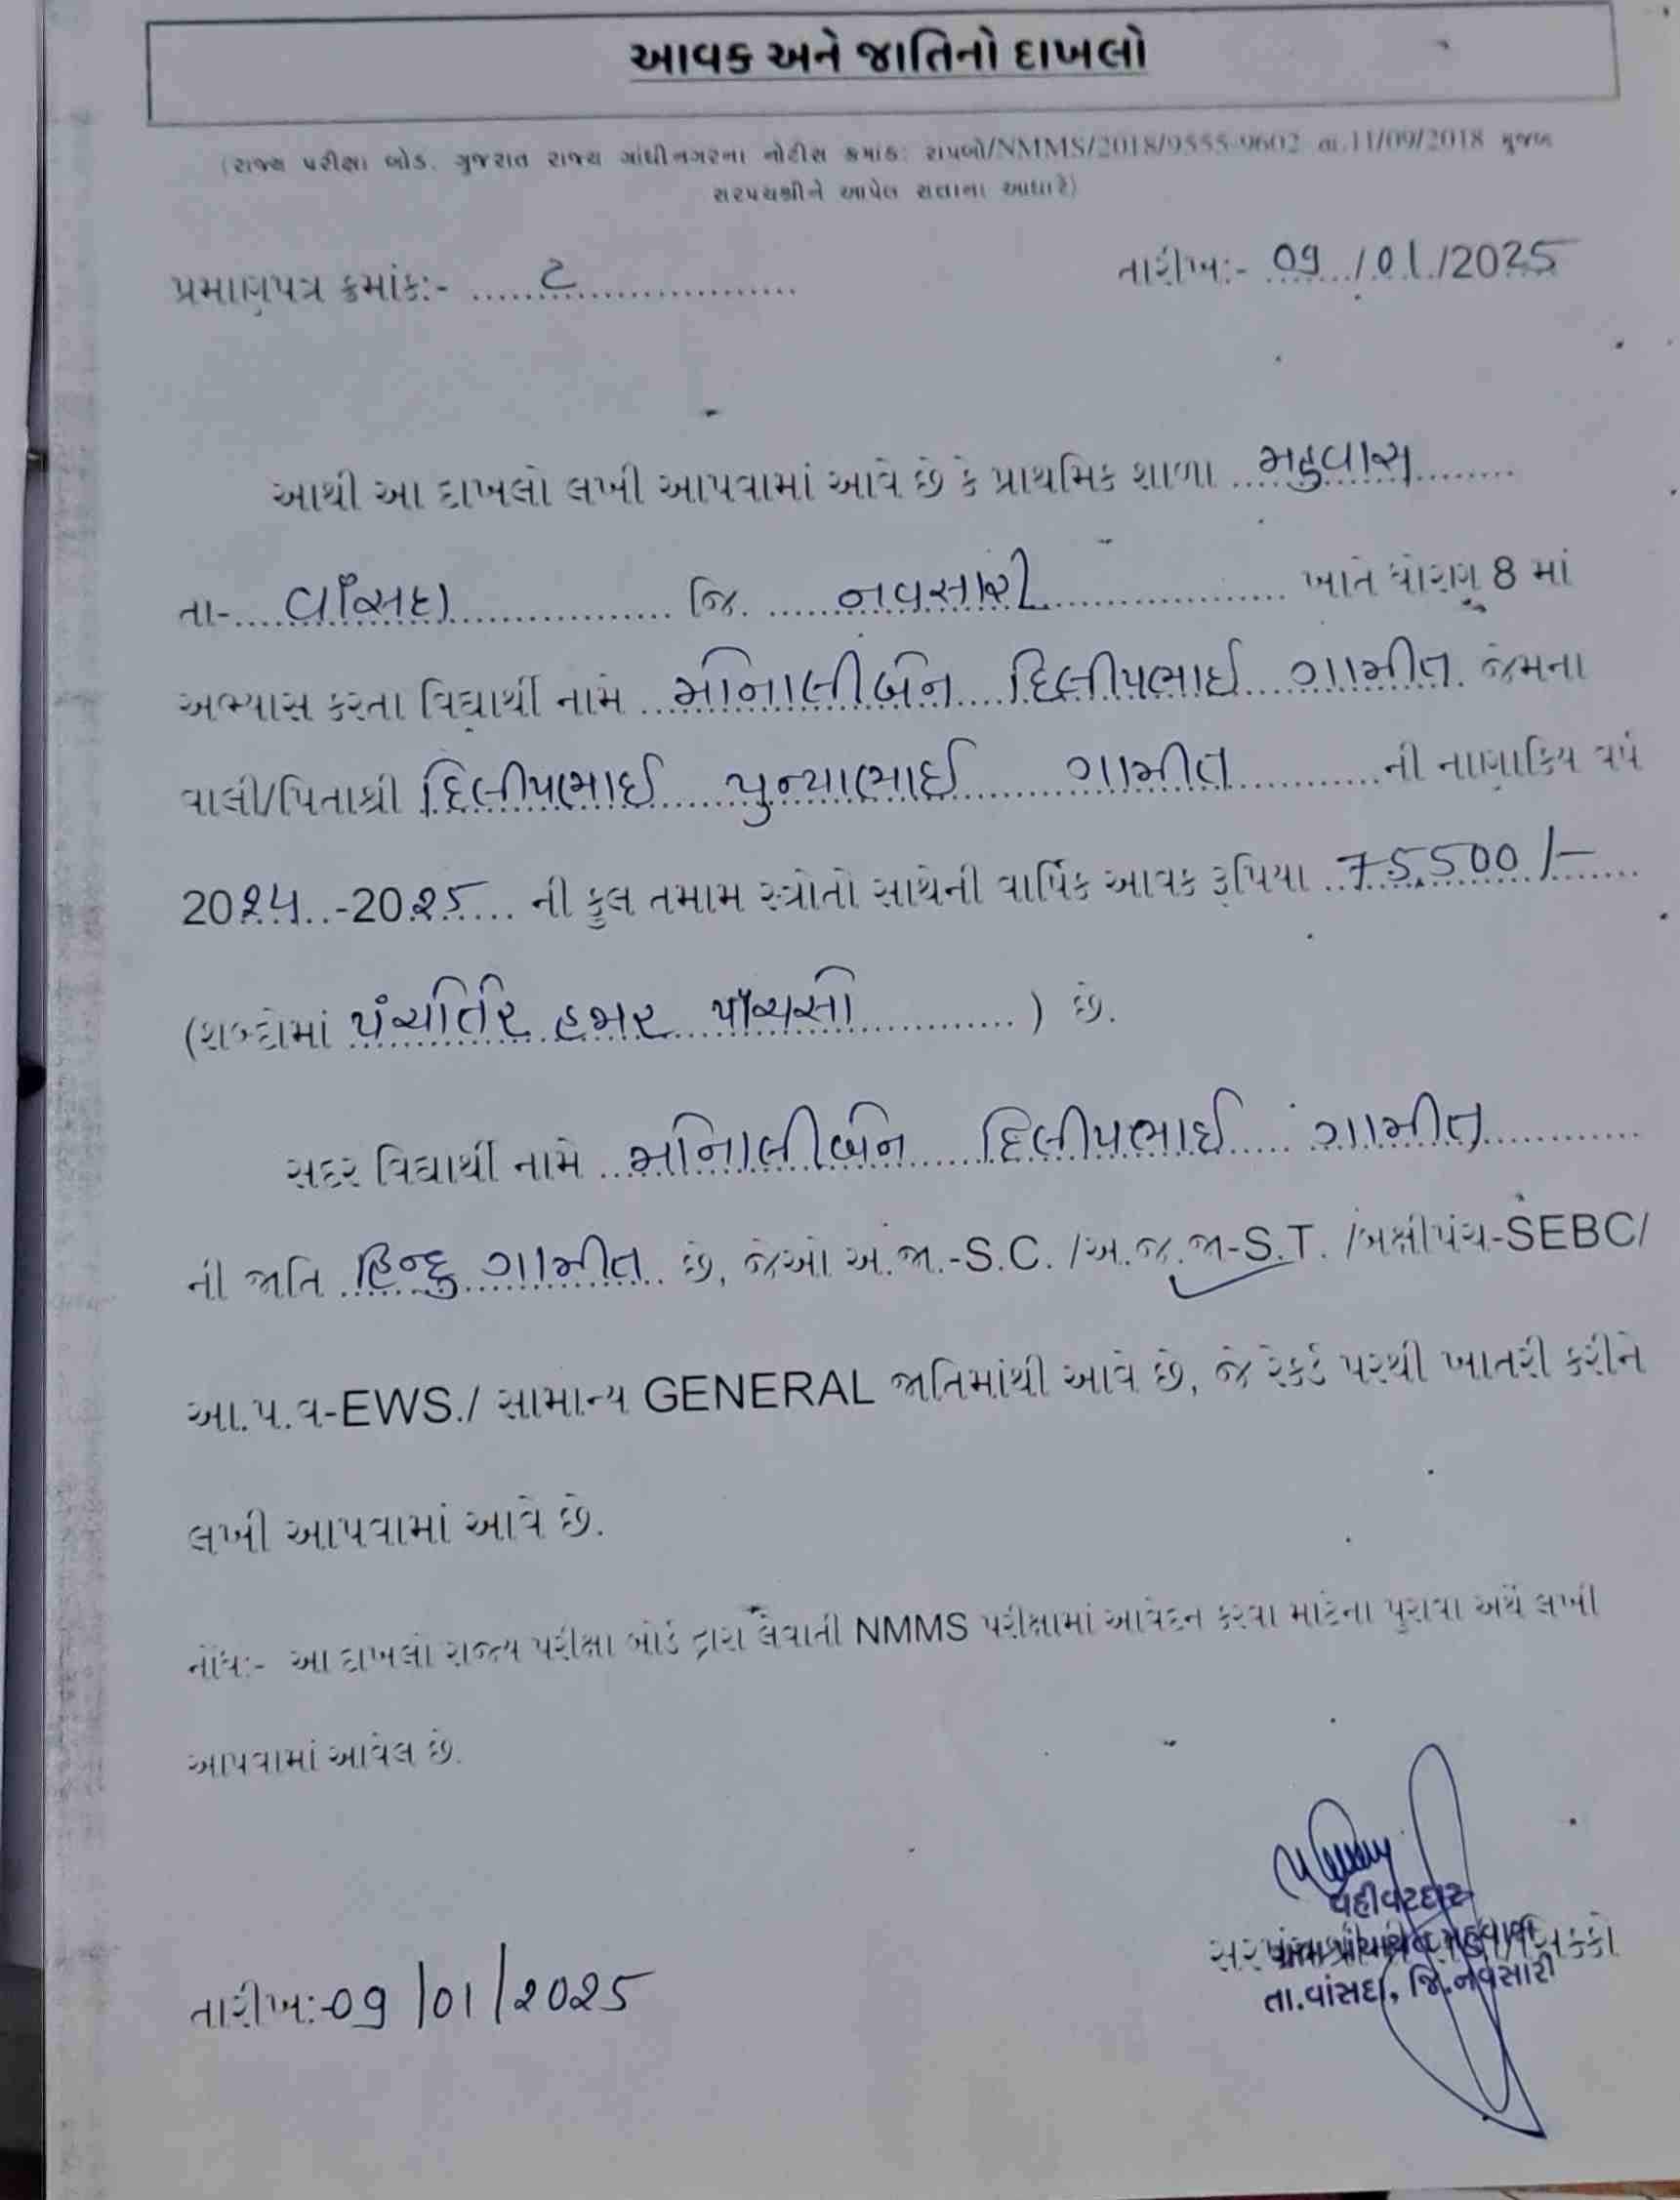 આવક અને જાતિનો દાખલો
(રાજ્ય પરીક્ષા બોર્ડ, ગુજરાત રાજ્ય ગાંધીનગરના નોટીસ ક્રમાંક: રાપબો/NMMS/2018/9555-9602 તા.11/09/2018 મુજબ
સરપંચશ્રીને આપેલ સત્તાના આધારે)
પ્રમાણપત્ર ક્રમાંક:- ૮
તારીખ:- 09/01/2025
આથી આ દાખલો લખી આપવામાં આવે છે કે પ્રાથમિક શાળા મહુવાસ
તા- વાંસદા જિ. નવસારી ખાતે ધોરણ 8 માં
અભ્યાસ કરતા વિદ્યાર્થી નામે મોનાલીબેન દિલીપભાઈ ગામીત જેમના
વાલી/પિતાશ્રી દિલીપભાઈ પુન્યાભાઈ ગામીત ની નાણાકિય વર્ષ
2024-2025 ની કુલ તમામ સ્ત્રોતો સાથેની વાર્ષિક આવક રૂપિયા 75,500/-
(શબ્દોમાં પંચોતેર હજાર પાંચસો ) છે.
સદર વિદ્યાર્થી નામે મોનાલીબેન દિલીપભાઈ ગામીત
ની જાતિ હિન્દુ ગામીત છે, જેઓ અ.જા.-S.C. /અ.જ.જા-S.T. /બક્ષીપંચ-SEBC/
આ.પ.વ-EWS./ સામાન્ય GENERAL જાતિમાંથી આવે છે, જે રેકર્ડ પરથી ખાતરી કરીને
લખી આપવામાં આવે છે.
નોંધ:- આ દાખલો રાજ્ય પરીક્ષા બોર્ડ દ્વારા લેવાતી NMMS પરીક્ષામાં આવેદન કરવા માટેના પુરાવા અર્થે લખી
આપવામાં આવેલ છે.
વહીવટદાર
તા.વાંસદા, જિ.નવસારી
તારીખ:-09/01/2025